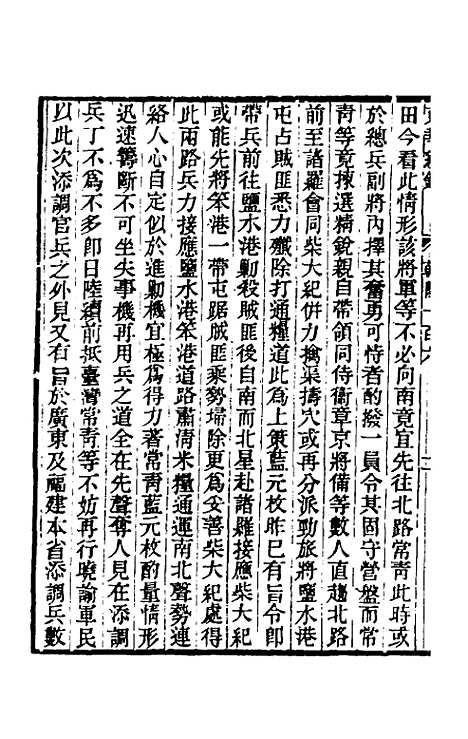 田今看此情形該將軍等不必向南竟宜先往北路常靑此時或
於總兵副將內擇其奮勇可恃者酌撥一員令其固守營盤而常
靑等竟揀選精銳親自帶領同侍衞章京將備等數人直趨北路
前至諸羅會同柴大紀併力擒渠擣穴或再分派勁旅將鹽水港
屯占賊匪悉力殲除打通糧道此爲上策藍元枚昨已有旨令卽
帶兵前往鹽水港勦殺賊匪後自南而北星赴諸羅接應柴大紀
或能先將笨港一帶屯踞賊匪乘勢掃除更爲妥善柴大紀處得
此兩路兵力接應鹽水港笨港道路肅淸米糧通運南北聲勢連
絡人心自定似於進勦機宜極爲得力著常靑藍元枚酌量情形
迅速籌斷不可坐失事機再用兵之道全在先聲奪人見在添調
兵丁不爲不多卽日陸續前抵臺灣常靑等不妨再行曉諭軍民
以此次添調官兵之外見又有旨於廣東及福建本省添調兵數